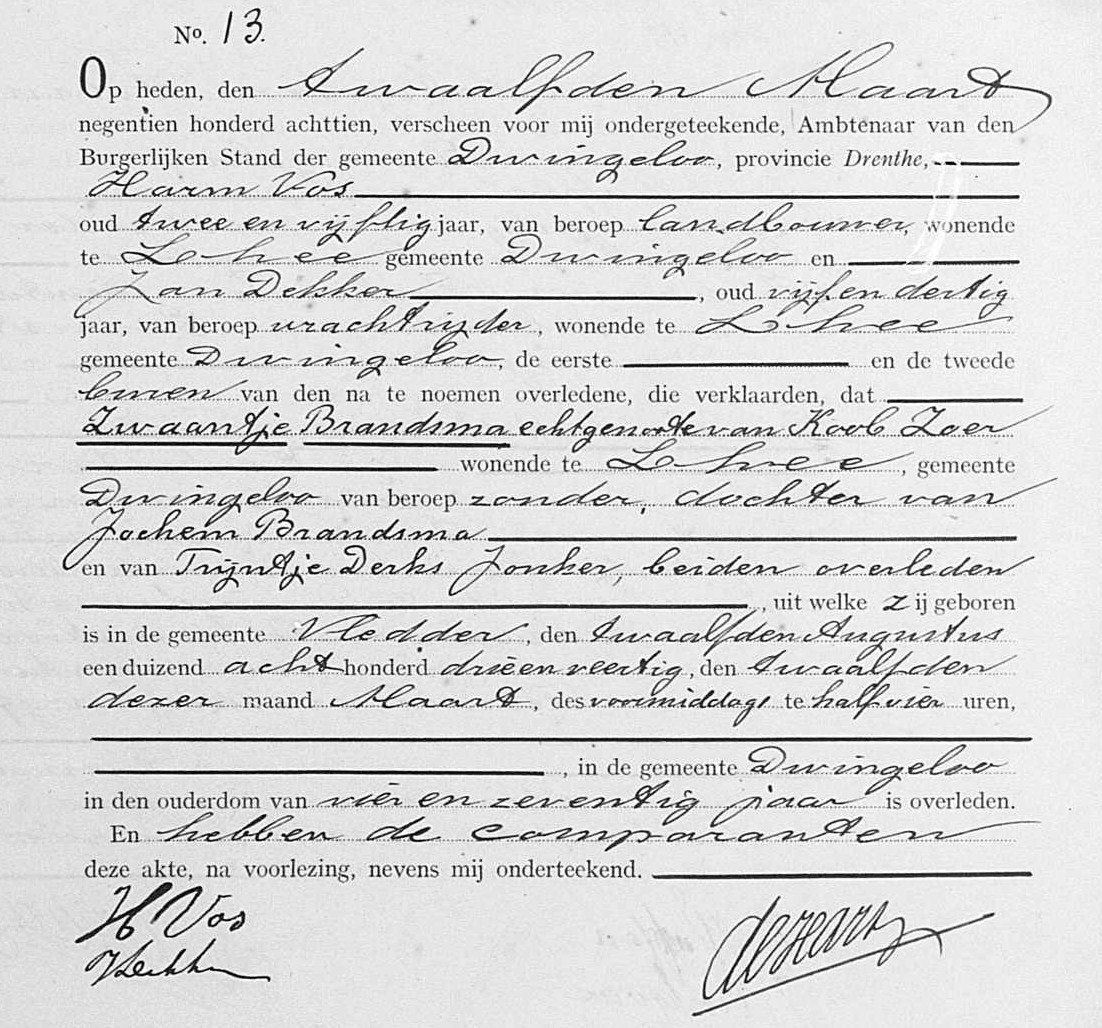 No. 13.
Op heden, den twaalfden Maart
negentien honderd achttien, verscheen voor mij ondergeteekende, Ambtenaar van den
Burgerlijken Stand der gemeente Dwingeloo, provincie Drenthe,
Harm Vos
oud twee en vijftig jaar, van beroep landbouwer, wonende
te Lhee gemeente Dwingeloo en
Jan Dekker, oud vijf en dertig
jaar, van beroep vrachtrijder, wonende te Lhee
gemeente Dwingeloo, de eerste en de tweede
buren van den na te noemen overledene, die verklaarden, dat
Zwaantje Brandsma echtgenoote van Koob Zoer
wonende te Lhee, gemeente
Dwingeloo van beroep zonder, dochter van
Jochem Brandsma
en van Trijntje Derks Jonker, beiden overleden
, uit welke zij geboren
is in de gemeente Vledder, den twaalfden Augustus
een duizend acht honderd drieen veertig, den twaalfden
dezer maand Maart, des voormiddags te half vier uren,
, in de gemeente Dwingeloo
in den ouderdom van vier en zeventig jaar is overleden.
En hebben de comparanten
deze akte, na voorlezing, nevens mij onderteekend.
H Vos
J Dekker